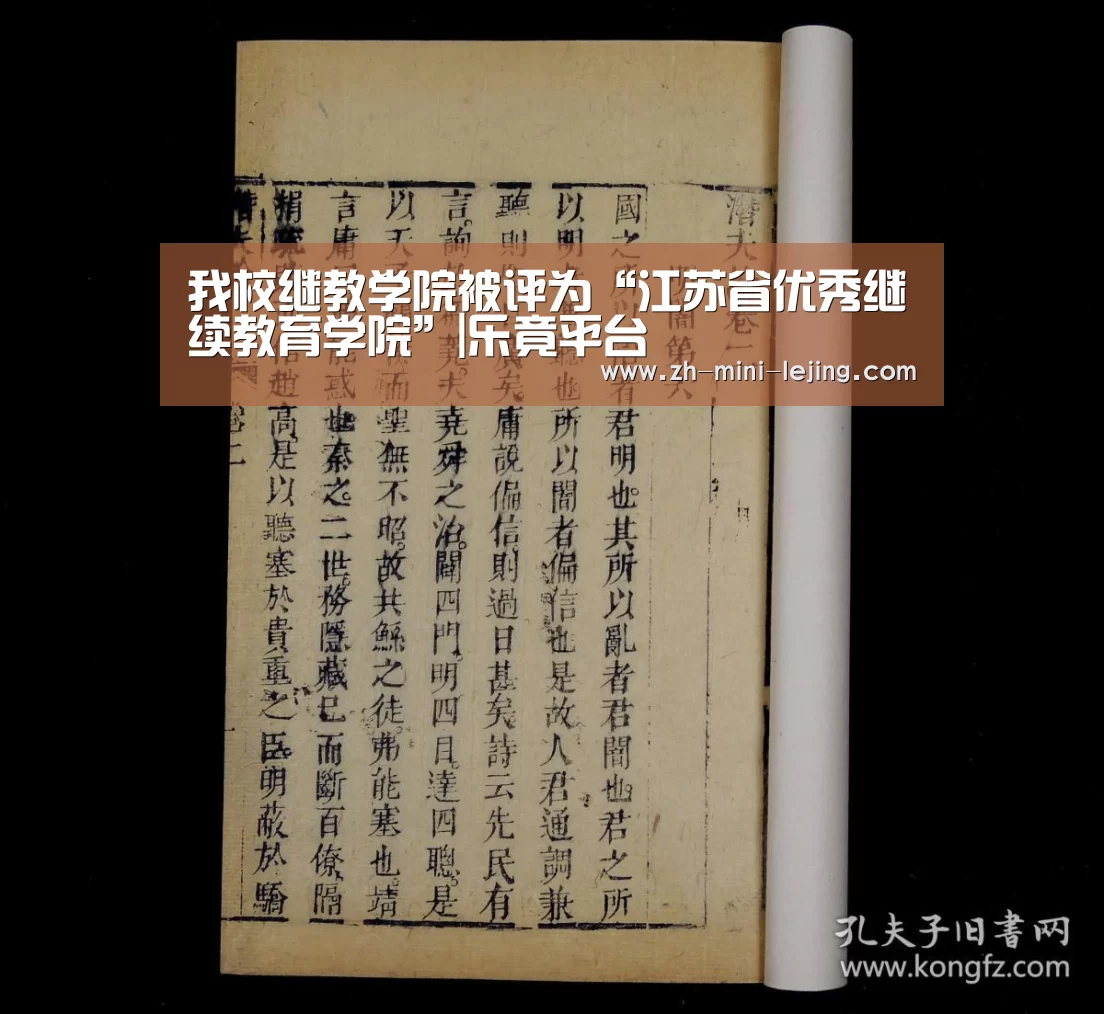 我校继教学院被评为“江苏省优秀继
续教育学院”|乐竟平台
www.zh-mini-lejing.com
潛夫卷二
闇第六
國之所以治者君明也其所以亂者君闇也君之所
以明兼聽也所以闇者偏信也是故人君通調兼
聽則矣庸說偏信則過日甚矣詩云先民有
言詢蕘夫堯舜之治闢四門明四目達四聰是
以天而聖無不昭故共鯀之徒弗能塞也靖
言庸能惑也秦之二世務隱藏己而斷百僚隔
捐疏信趙高是以聽塞於貴重之臣明蔽於驕
卷二
孔夫子旧书网
www.kongfz.com